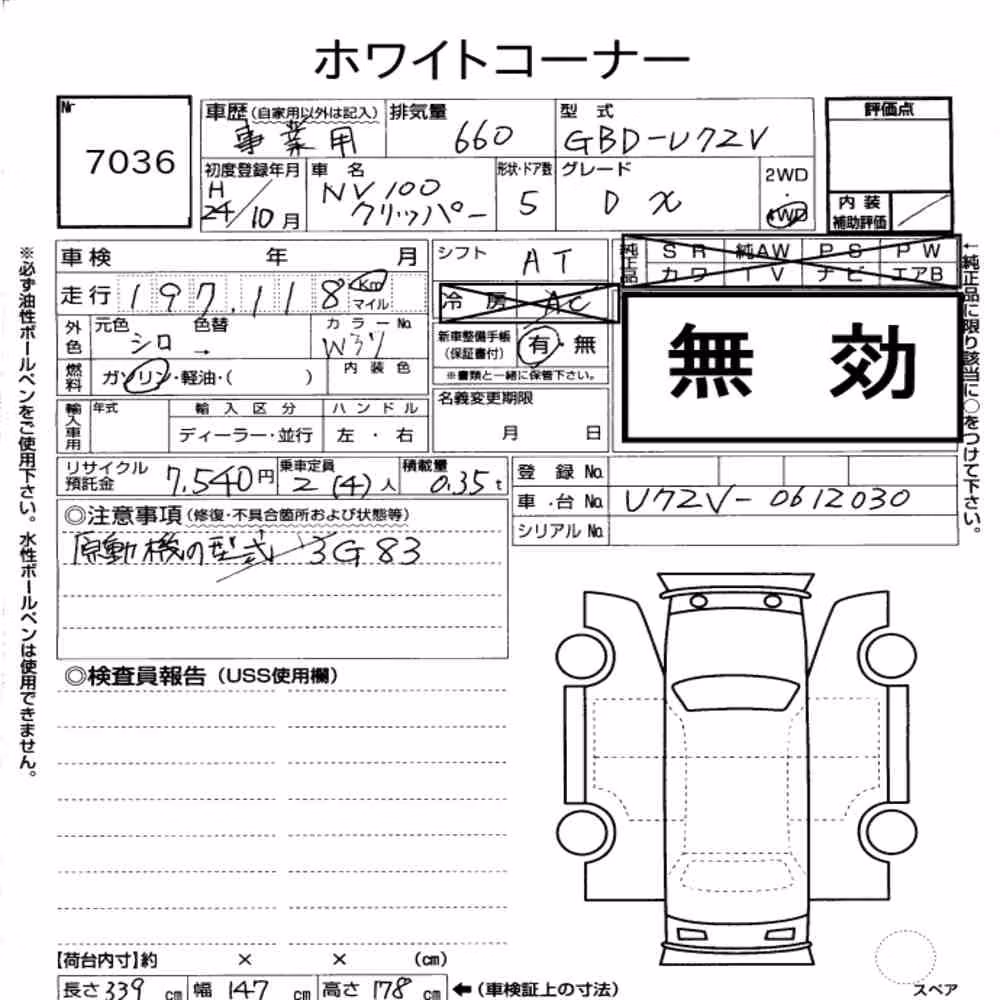 ホワイトコーナー
Nr
7036
車歴(自家用以外は記入)
事業用
排気量
660
型式
GBD-U72V
評価点
初度登録年月
H
24/10月
車名
NV100
クリッパー
形状・ドア数
5
グレード
DX
2WD
・
4WD
内装
補助評価
※必ず油性ボールペンをご使用下さい。水性ボールペンは使用できません。
車検 年 月
走行 197,118 Km
マイル
シフト
AT
冷房 AC
純正品
SR 純AW PS PW
カワ TV ナビ エアB
←純正品に限り該当に○をつけて下さい。
外色
元色 色替
シロ →
カラーNo.
W37
燃料
ガソリン・軽油・( )
内装色
新車整備手帳
(保証書付)
有・無
※書類と一緒に保管下さい。
無効
輸入車用
年式
輸入区分
ディーラー・並行
ハンドル
左・右
名義変更期限
月 日
リサイクル
預託金
7,540円
乗車定員
2(4)人
積載量
0.35t
登録No.
車台No. U72V-0612030
シリアルNo.
◎注意事項(修復・不具合箇所および状態等)
原動機の型式 3G83
◎検査員報告(USS使用欄)
【荷台内寸】約 × × (cm)
長さ339cm 幅147cm 高さ178cm ←(車検証上の寸法)
スペア